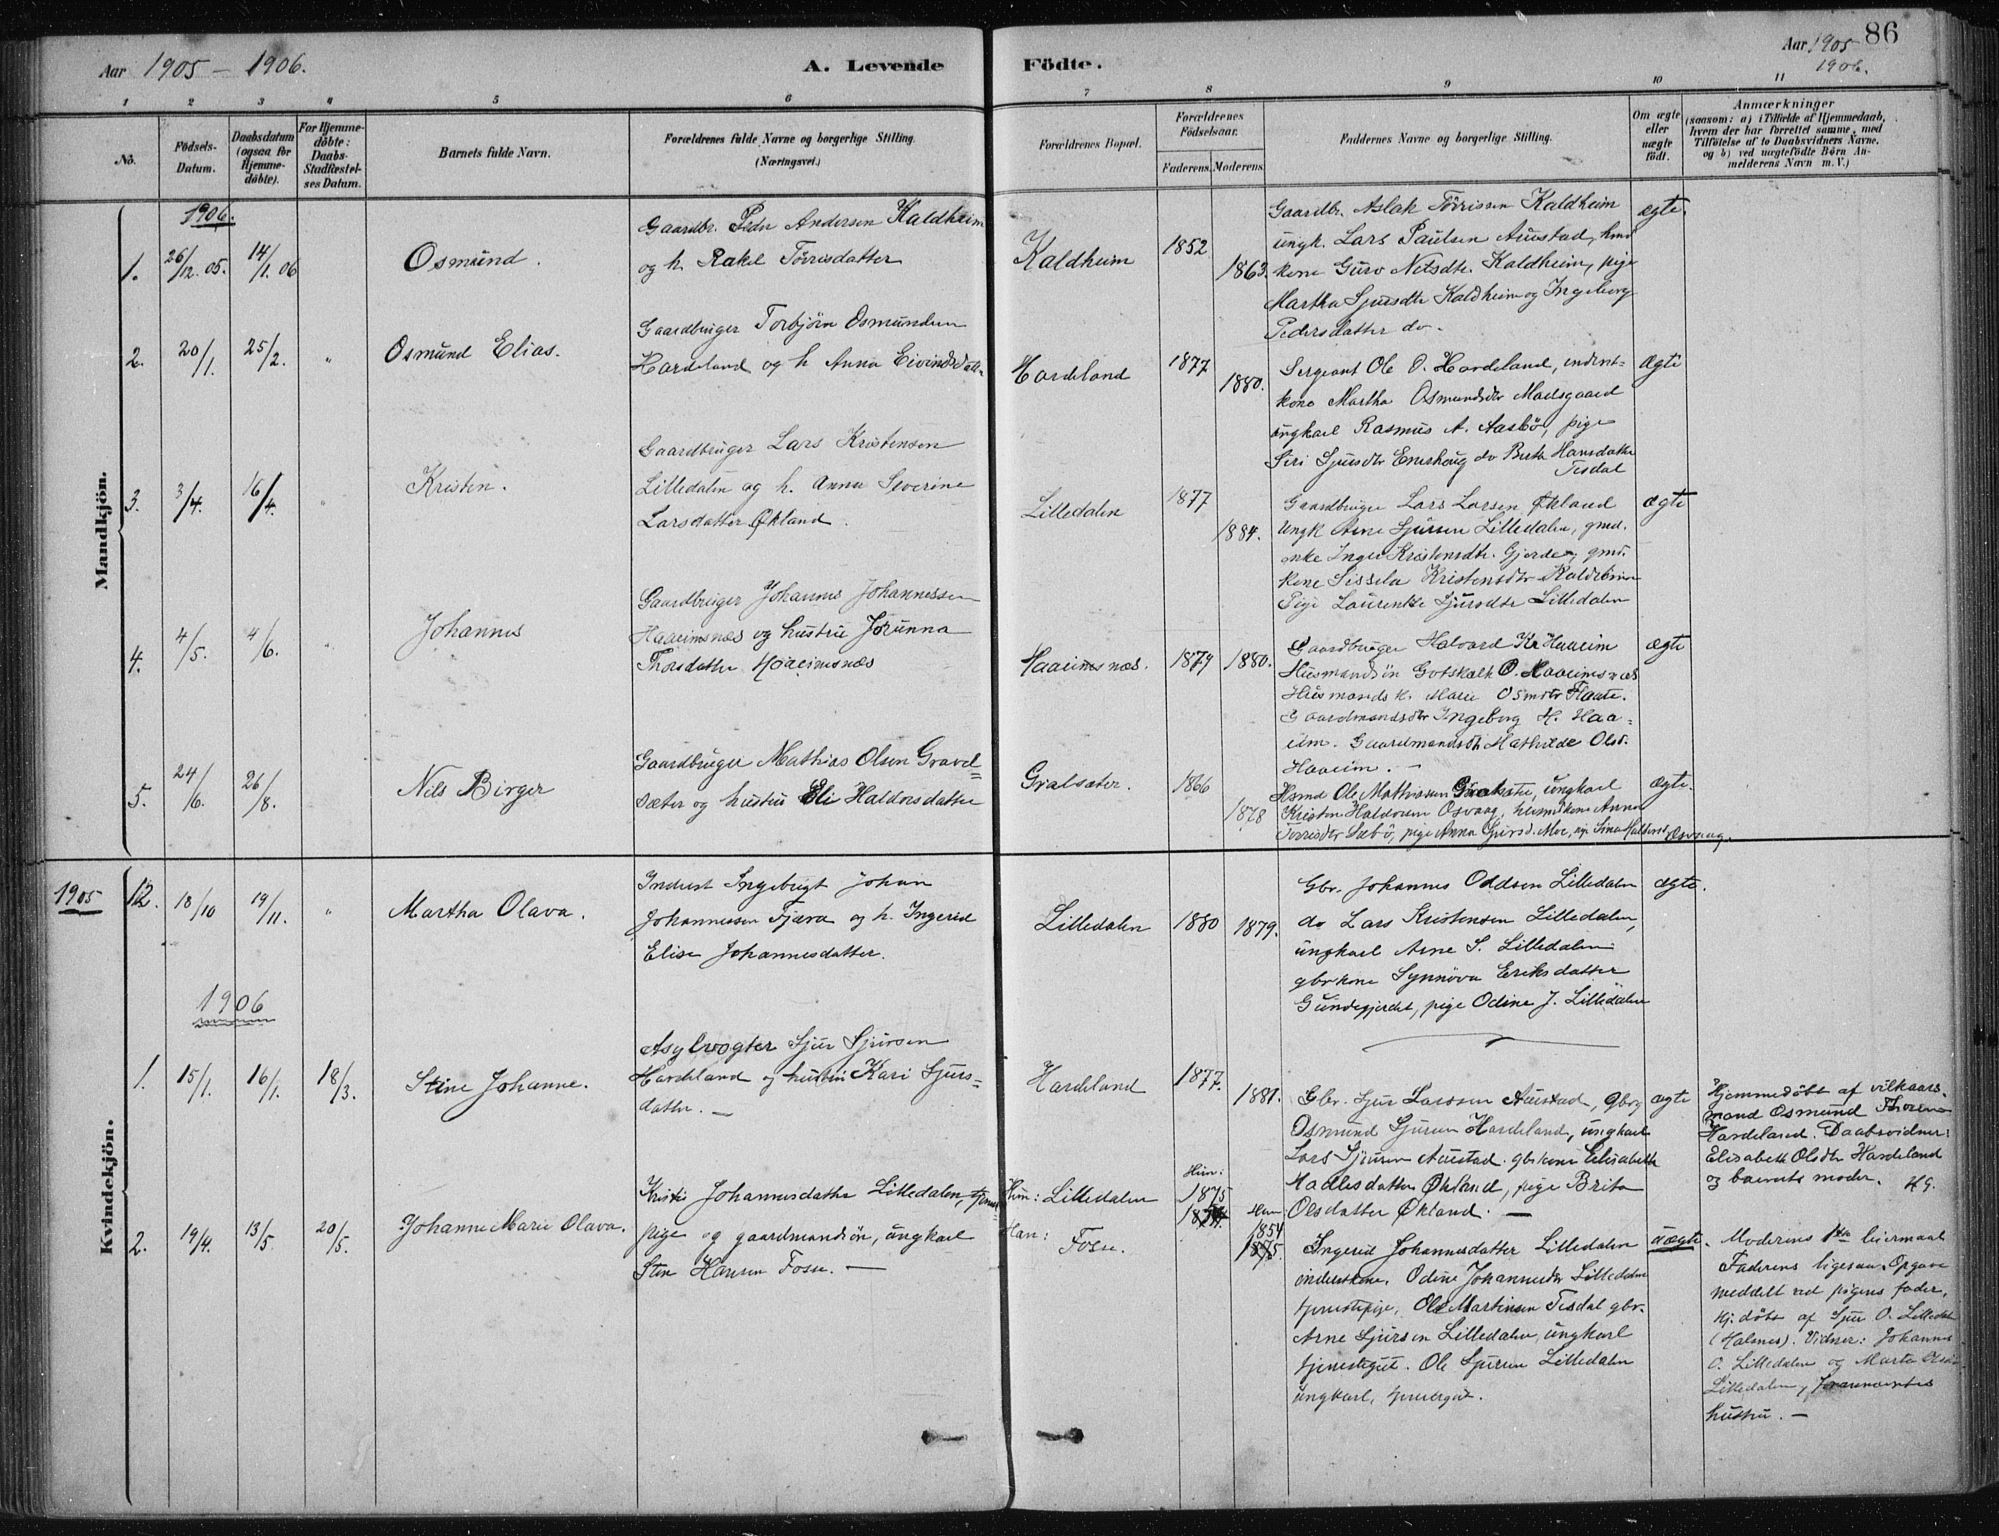 Aar 1905 – 1906.
A. Levende
Födte.
Aar 1905
1906.
86
1 2 3 4 5 6 7 8 9 10 11
No.
Födsels-
Datum.
Daabsdatum
(ogsaa for
Hjemme-
döbte).
For Hjemme-
döbte:
Daabs-
Stadfæstel-
ses Datum.
Barnets fulde Navn.
Forældrenes fulde Navne og borgerlige Stilling.
(Næringsvei.)
Forældrenes Bopæl.
Forældrenes
Födselsaar.
Faderens. Moderens.
Faddernes Navne og borgerlige Stilling.
Om ægte
eller
uægte
födt.
Anmærkninger
(saasom: a) i Tilfælde af Hjemmedaab,
hvem der har forrettet samme, med
Tilföielse af to Daabsvidners Navne,
og b) ved uægtefödte Börn An-
melderens Navn m. V.)
Mandkjön.
1906.
1.
26/12. 05.
14/1. 06
Osmund.
Gaardbr. Peder Andersen Kaldheim
og h. Rakel Törrisdatter
Kaldheim
1852
1863.
Gaardbr. Aslak Törrissen Kaldheim
ungk. Lars Paulsen Austad,
kone Guro Nilsdtr. Kaldheim, pige
Martha Sjursdtr Kaldheim og Ingeborg
Pedersdatter do.
ægte.
2.
20/1.
25/2.
"
Osmund Elias.
Gaardbruger Torbjörn Osmundsen
Hardeland og h Anna Eivindsdatter
Hardeland
1877
1880.
Sergeant Ole O. Hardeland, inderst-
kone Martha Osmundsdtr Madsgaard
ungkarl Rasmus A. Aasbö, pige
Siri Sjursdtr Enershaug do Berta Hansdatter
Tesdal
Ægte
3.
3/4.
16/4.
"
Kristen.
Gaardbruger Lars Kristensen
Lilledalen og h. Anna Severine
Larsdatter Økland.
Lilledalen
1877
1884.
Gaardbruger Lars Larsen Økland
Ungk Arne Sjursen Lilledalen, gmd.
enke Inger Kristensdtr. Gjerde, gmd.
kone Sissela Kristensdtr Kaldheim
Pige Laurentse Sjursdtr Lilledalen
ægte
4.
4/5.
4/6.
"
Johannes
Gaardbruger Johannes Johannessen
Haaeimsnæs og hustru Jorunna
Thorsdatter Haaeimsnæs
Haaeimsnæs.
1879
1880.
Gaardbruger Halvard Kr Haaeim
Husmandsön Gotskalk O. Haaeimsnæs
Husmandsk. Marie Osmdtr Flaate.
Gaardmandsdtr Ingeborg H. Haa-
eim. Gaardmandsdtr Mathilde Olsd.
Haaeim. —
ægte
5.
24/6.
26/8.
Nils Birger
Gaardbruger Mathias Olsen Gravel=
sæter og hustru Eli Haldorsdatter
Gralsæter.
1866
1878
Hsmd Ole Mathiassen ungkarl
Kristen Haldorsen Osvaag, husmdkone Anna
Törrisdtr Sæbö, pige Anna Sjursd. Moe, Osvaag.
ægte.
Kvindekjön.
1905
12.
18/10
19/11.
"
Martha Olava.
Inderst Ingebrigt Johan
Johannessen Fjæra og h. Ingerid
Elise Johannesdatter.
Lilledalen
1880
1879.
Gbr. Johannes Oddsen Lilledalen
do Lars Kristensen Lilledalen,
ungkarl Arne S. Lilledalen
gbrkone Synnöva Eriksdatter
Gundegjerdet, pige Odine J. Lilledalen
ægte.
1906
1.
15/1.
16/1.
18/3.
Stine Johanne.
Asylvogter Sjur Sjursen
Hardeland og hustru Kari Sjurs-
datter. —
Hardeland
1877.
1881.
Gbr. Sjur Larssen Austad, gbr
Osmund Sjursen Hardeland, ungkarl
Lars Sjursen Austad. gbrkone Elisabeth
Madlesdatter Økland, pige Brita
Olsdatter Økland. —
ægte
Hjemmedöbt af vilkaars-
mand Osmund Thorsen
Hardeland. Daabsvidner:
Elisabeth Olsdtr Hardeland
og barnets moder. HG.
2.
19/4.
13/5.
20/5.
Johanne Marie Olava.
Kristi Johannesdatter Lilledalen,
pige og gaardmandsön, ungkarl
Sten Hansen Fosse. —
Hun: Lilledalen
Han: Fosse.
Hun:
1875
Han
1854
1875.
Ingerid Johannesdatter Lilledalen
inderstkone, Odine Johannesdtr Lilledalen
tjenestepige, Ole Martinsen Tesdal gbr.
Arne Sjursen Lilledalen, ungkarl
tjenestegut. Ole Sjursen Lilledalen
ungkarl,
uægte.
Moderens 1ste leiermaal
Faderens ligesaa. Opgave
meddelt ved pigens fader,
hj. döbt af Sjur O. Lilledalen
(Halsnes). Vidner: Johannes
O. Lilledalen og Marta
Lilledalen,
hustru. —